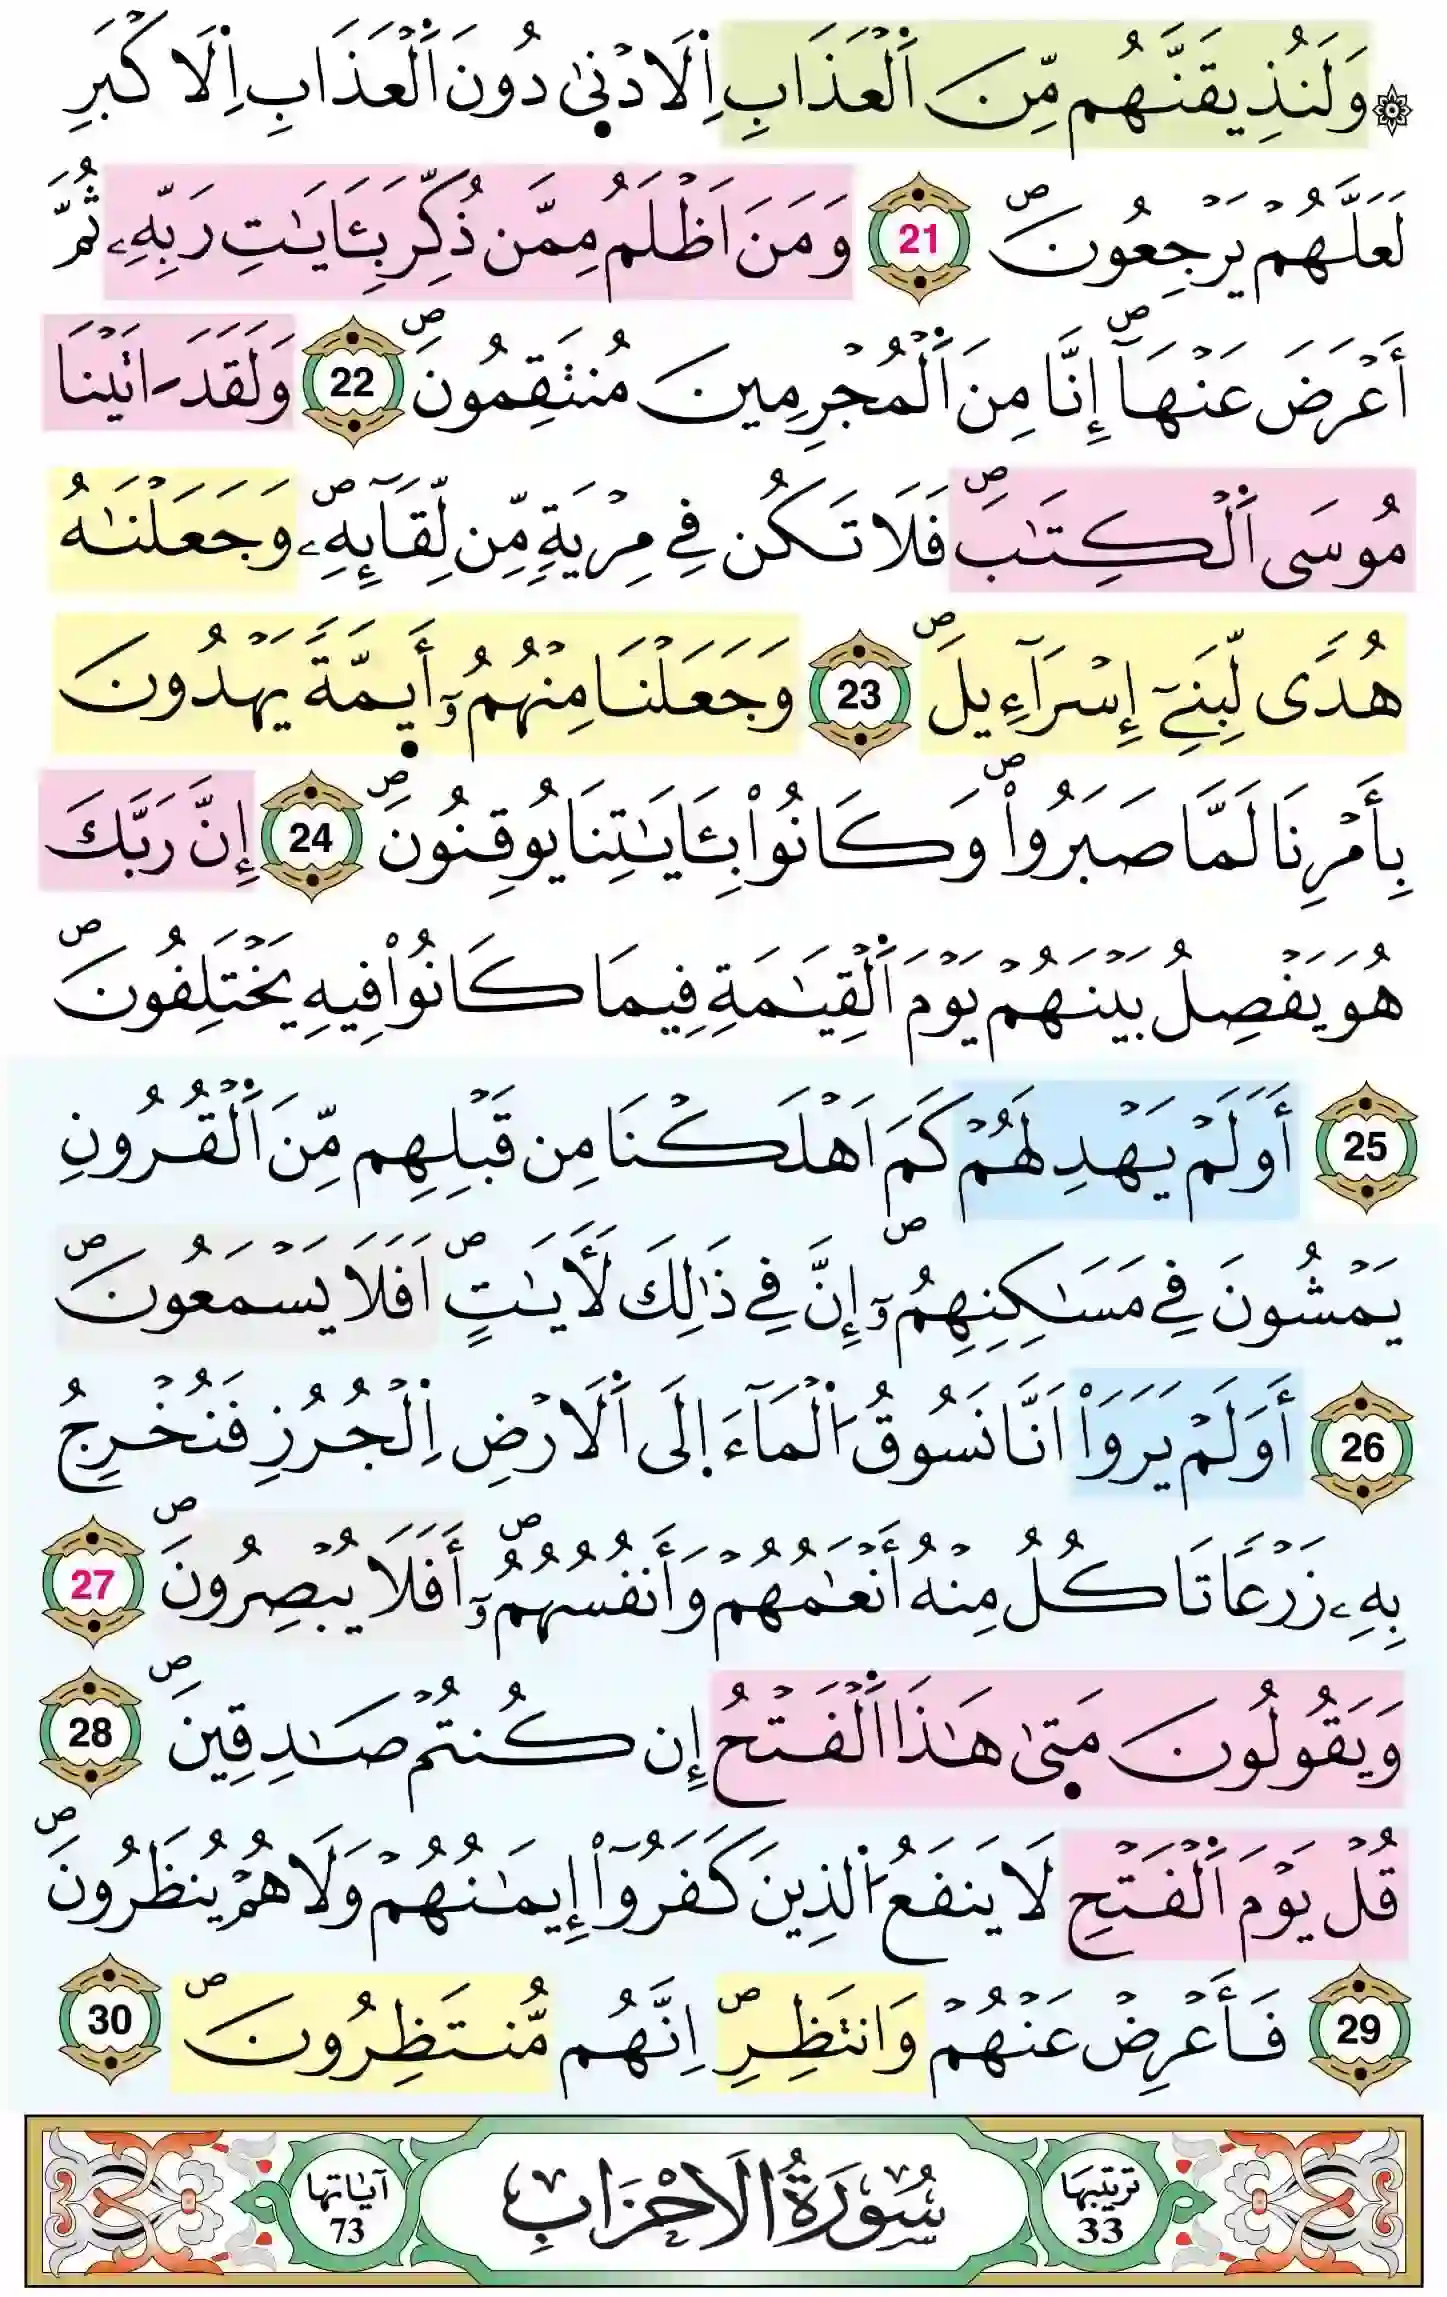 ۞ وَلَنُذِيقَنَّهُم مِّنَ اَ۬لْعَذَابِ اِ۬لَادْن۪يٰ دُونَ اَ۬لْعَذَابِ اِ۬لَاكْبَرِ
لَعَلَّهُمْ يَرْجِعُونَۖ 21 وَمَنَ اَظْلَمُ مِمَّن ذُكِّرَ بِـَٔايَٰتِ رَبِّهِۦ ثُمَّ
أَعْرَضَ عَنْهَآۖ إِنَّا مِنَ اَ۬لْمُجْرِمِينَ مُنتَقِمُونَۖ 22 وَلَقَدَ اٰتَيْنَا
مُوسَى اَ۬لْكِتَٰبَۖ فَلَا تَكُن فِے مِرْيَةٖ مِّن لِّقَآئِهِۦۖ وَجَعَلْنَٰهُ
هُدٗى لِّبَنِےٓ إِسْرَآءِيلَۖ 23 وَجَعَلْنَا مِنْهُمُۥٓ أَي۪مَّةٗ يَهْدُونَ
بِأَمْرِنَا لَمَّا صَبَرُواْۖ وَكَانُواْ بِـَٔايَٰتِنَا يُوقِنُونَۖ 24 إِنَّ رَبَّكَ
هُوَ يَفْصِلُ بَيْنَهُمْ يَوْمَ اَ۬لْقِيَٰمَةِ فِيمَا كَانُواْ فِيهِ يَخْتَلِفُونَۖ
25 أَوَلَمْ يَهْدِ لَهُمْ كَمَ اَهْلَكْنَا مِن قَبْلِهِم مِّنَ اَ۬لْقُرُونِ
يَمْشُونَ فِے مَسَٰكِنِهِمُۥٓۖ إِنَّ فِے ذَٰلِكَ لَأٓيَٰتٍۖ اَفَلَا يَسْمَعُونَۖ
26 أَوَلَمْ يَرَوَاْ اَنَّا نَسُوقُ اُ۬لْمَآءَ إِلَى اَ۬لَارْضِ اِ۬لْجُرُزِ فَنُخْرِجُ
بِهِۦ زَرْعاٗ تَاكُلُ مِنْهُ أَنْعَٰمُهُمْ وَأَنفُسُهُمُۥٓۖ أَفَلَا يُبْصِرُونَۖ 27
وَيَقُولُونَ مَت۪يٰ هَٰذَا اَ۬لْفَتْحُ إِن كُنتُمْ صَٰدِقِينَۖ 28
قُلْ يَوْمَ اَ۬لْفَتْحِ لَا يَنفَعُ اُ۬لذِينَ كَفَرُوٓاْ إِيمَٰنُهُمْ وَلَا هُمْ يُنظَرُونَۖ
29 فَأَعْرِضْ عَنْهُمْ وَانتَظِرِۖ اِنَّهُم مُّنتَظِرُونَۖ 30
ترتيبها 33 سُورَةُ الَاحْزَابِ آياتها 73